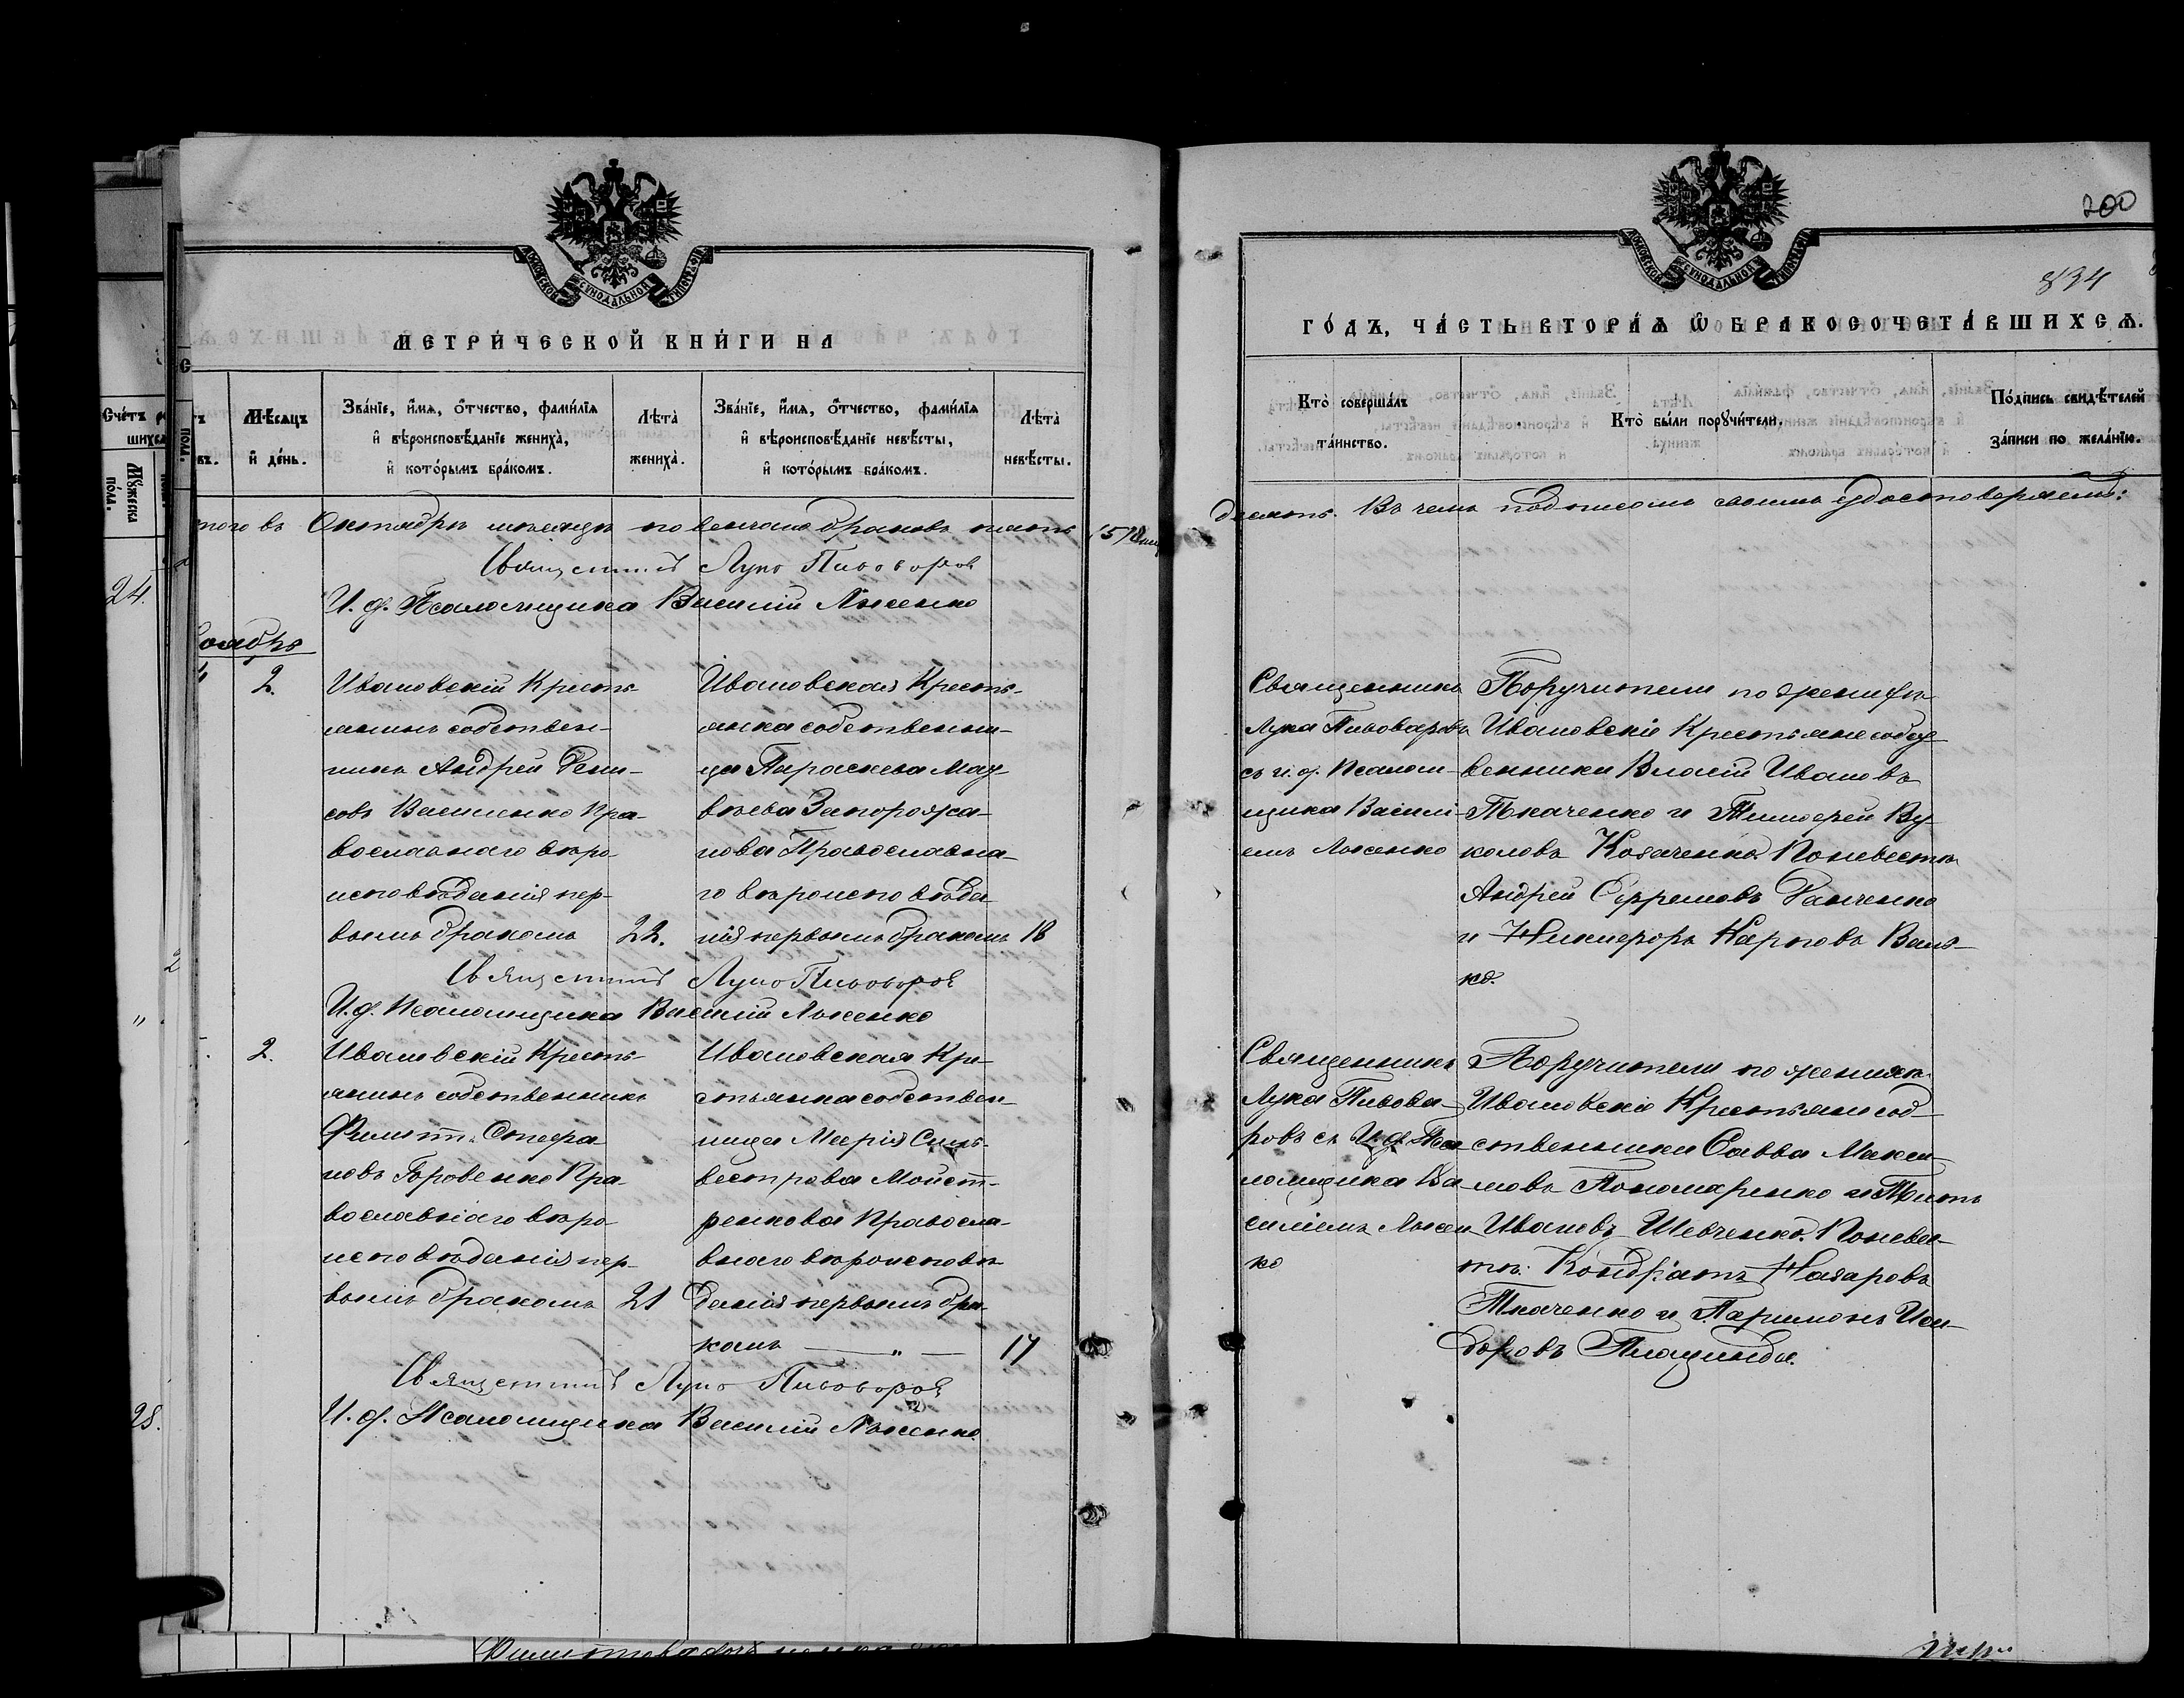 200
834
МЕТРИ́ЧЕСКОЙ КНИ́ГИ НА
ГО́ДЪ, ЧА́СТЬ ВТОРА́Ѧ Ѡ БРАКОСОЧЕТА́ВШИХСѦ.
Счéтъ
Мꙋ́жеска по́ла.
Мѣ́сяцъ и҆ де́нь.
Зва́нїе, и҆́мѧ, ѻ҆́тчество, фами́лїѧ и҆ вѣроисповѣ́данїе жениха̀, и҆ кото́рымъ бра́комъ.
Лѣта̀ жениха̀.
Зва́нїе, и҆́мѧ, ѻ҆́тчество, фами́лїѧ и҆ вѣроисповѣ́данїе невѣ́сты, и҆ кото́рымъ бра́комъ.
Лѣта̀ невѣ́сты.
Кто̀ соверша́лъ та́инство.
Кто̀ бы́ли порꙋчи́тели.
По́дпись свидѣ́телей за́писи по жела́нїю.
того въ Октябрѣ мѣсяцѣ повенчано браковъ пять (5)
Въ чемъ подписомъ своимъ удостоверяемъ:
Священникъ Лука Пивоваровъ
И. д. Псаломщика Василій Лысенко
24.
2.
Ивановскій Кресть-
янинъ собствен-
никъ Андрей Дени-
совъ Василенко Пра-
вославнаго вѣро-
исповѣданія пер-
вымъ бракомъ
22.
Ивановская Кресть-
янка собственни-
ца Параскева Мат-
вѣева Запорожса-
нова Православна-
го вѣроисповѣда-
нія первымъ бракомъ
18
Священникъ
Лука Пивоваровъ
съ и. д. Псалом-
щика Васили-
емъ Лысенко
Поручители по женихѣ
Ивановскіе Крестьяне собст-
венники Власій Ивановъ
Ткаченко и Тимофей Ву-
коловъ Козаченко. По невестѣ
Андрей Ефремовъ Ганченко
и Никифоръ Карповъ
ко.
Священникъ Лука Пивоваровъ
И. д. Псаломщика Василій Лысенко
2.
Ивановскій Кресть-
янинъ собственникъ
Филиппъ Стефа-
новъ Боровенко Пра-
вославнаго вѣро-
исповѣданія пер-
вымъ бракомъ
21
Ивановская Кре-
стьянка собствен-
ница Марія Силь-
вестрова Мойст-
ренкова Правосла-
внаго вѣроисповѣ-
данія первымъ бра-
комъ — „ —
17
Священникъ
Лука Пивова-
ровъ съ И. д. Пса-
ломщика Ва-
силіемъ Лысен-
ко
Поручители по женихѣ
Ивановскіе Крестьяне соб-
ственники Савва Макси-
мовъ Пономаренко и Титъ
Ивановъ Шевченко. По невес-
тѣ: Кондратъ Назаровъ
Ткаченко и Парфенонъ Иси-
доровъ Плащинда.
Священникъ Лука Пивоваровъ
И. д. Псаломщика Василій Лысенко
28.